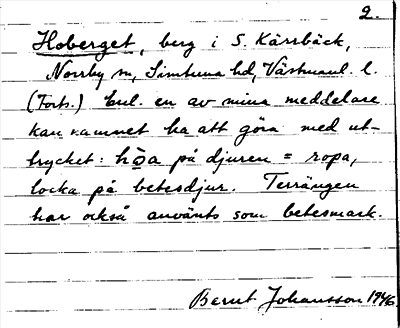 2.
Hoberget, berg i S. Kärrbäck,
Norrby sn, Simtuna hd, Västmanl. l.
(Forts.) Enl. en av mina meddelare
kan namnet ha att göra med ut-
trycket: hōa på djuren = ropa,
locka på betesdjur. Terrängen
har också använts som betesmark.
Bernt Johansson 1946